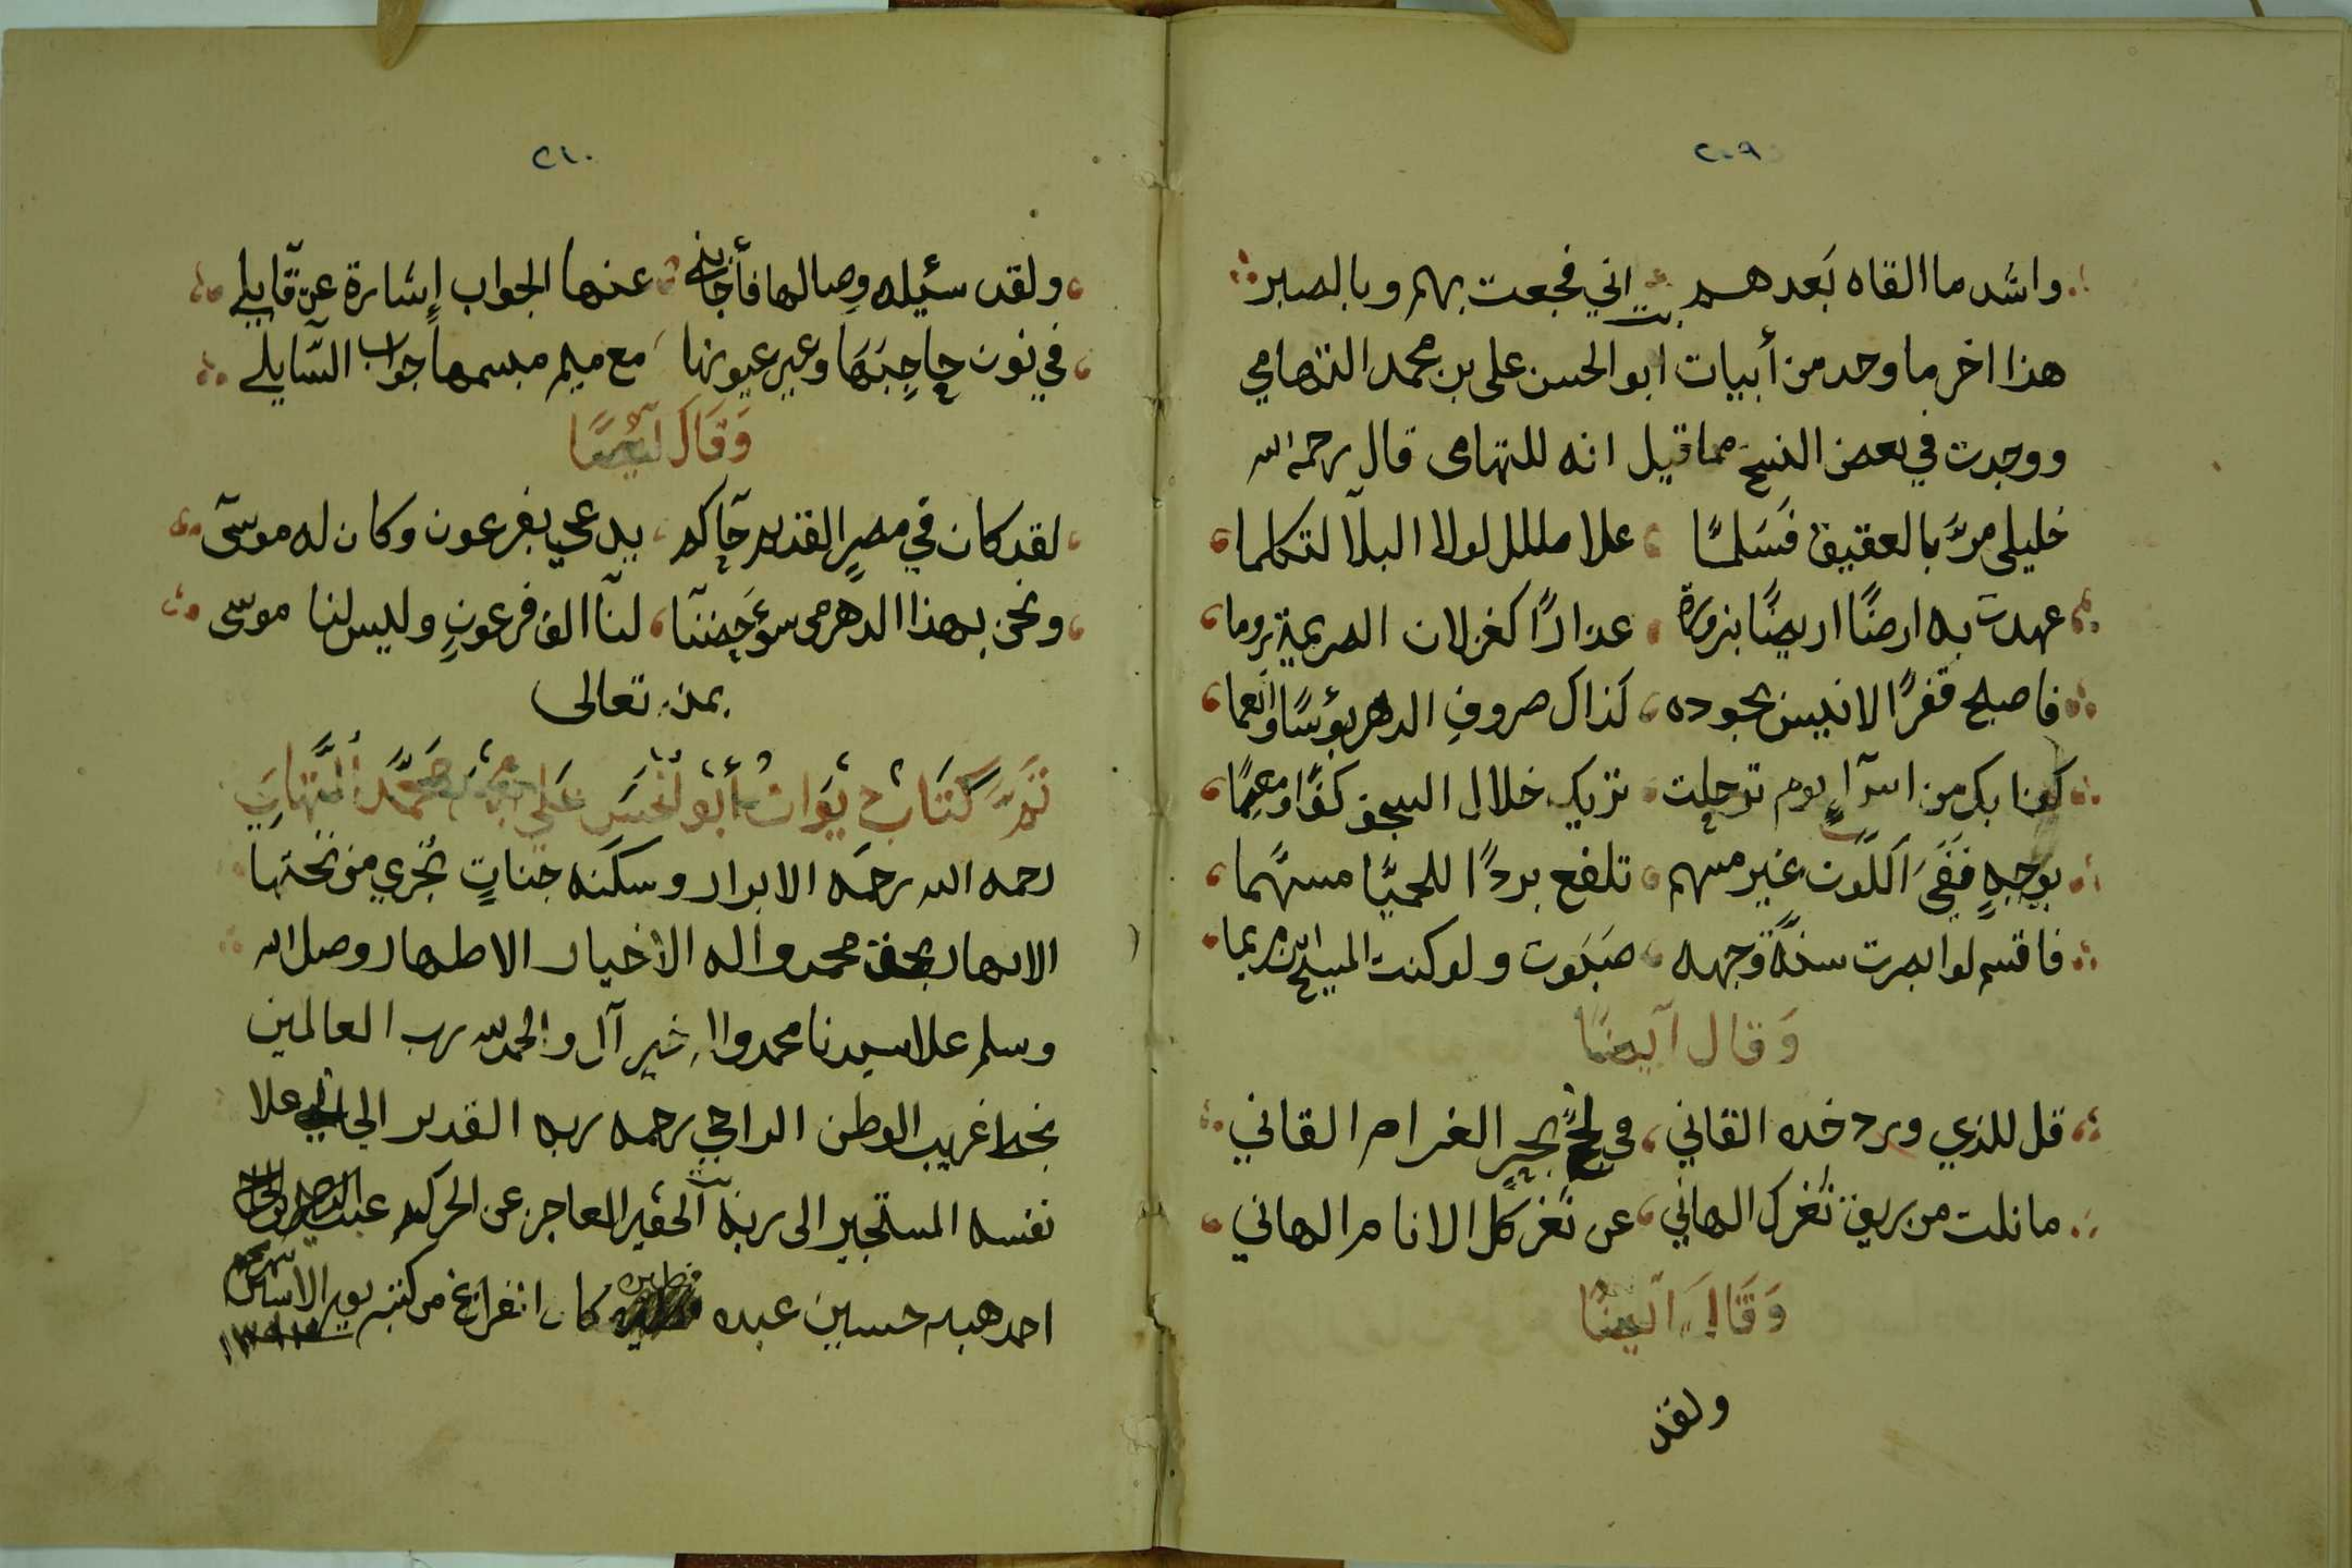 ٢٠٩
واشد ما القاه بَعدهم اني فجعت بهم وبالصبر
هذا اخر ما وجد من أبيات ابو الحسن على بن محمد التهامي
ووجدت في بعض النسخ مما قيل انه للتهامى قال رحمه الله
خليلى مرَّ بالعقيق فسَلمًا علا ملل لولا البلآ لتكلما
عهدت به ارضًا اريضًا بنروة عذارًا كغزلان الصريمة نروما
فاصبح قفرًا لا انيس بجوده كذاك صروف الدهر بؤسًا وانعما
بك من اسرآءٍ يوم ترحلت تريك خلال السجف كفًا ومعصمًا
بوجهٍ اللون غير مسهم تلفع بردًا للحميَّا مسهَّما
فاقسم لو ابصرت سنة وجهه صبَوت ولو كنت المسيح ابن مريما
وَقال آيضًا
قل للذي ورد خده القاني في لجج بحر الغرام القاني
ما نلت من بريق ثغرك الهاني عن ثغر كل الانام الهاني
وَقَالَ ايضًا
ولقد
٢١٠
ولقد سئيله وصالها فأجابني عنها الجواب إشارة عن قآيلي
في نون حاجبَهَا وعير عيونها مع ميم مبسمها جواب السَّايلي
وَقَالَ آيضًا
لقد كان في مصرٍ القديم حآكم يدعي بفرعون وكان له موسى
ونحن بهذا الدهر من سوءِ حضنآ لنآ الف فرعونٍ وليس لنا موسى
بمنه تعالى
تمَّ كتَاب ديوَان أبو الحسَن عَلي بن محمَّد التهامي
رحمه الله رحمَه الابرار وسكنَه جناتٍ تجري من تحتها
الانهار بحق محمد واله الاخيار الاطهار وصل الله
وسلم علا سيدنا محمد واله خير آل والحمد لله رب العالمين
بخط غريب الوطن الراجي رحمه ربه القدير الجاني علا
نفسه المستجير الى ربه الحقير العاجز عن الحركه عبد
احد هبه حسين عبده كان انفراغ من كتبه يوم الاسنين